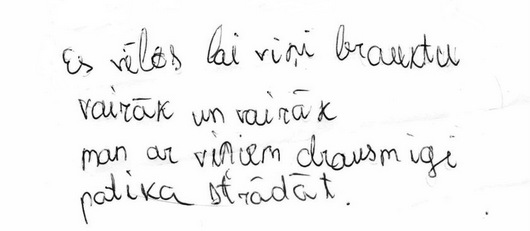 Es vēlos lai viņi brauktu
vairāk un vairāk
man ar viņiem drausmigi
patika strādāt.